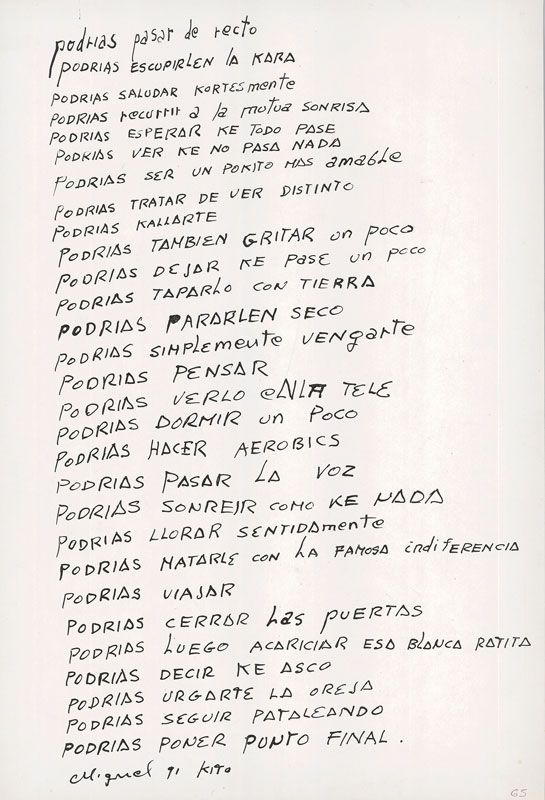 podrias pasar de recto
PODRIAS ESCUPIRLEN LA KARA
PODRIAS SALUDAR KORTESmente
PODRIAS recurrir a la mutua SONRISA
PODRIAS ESPERAR KE TODO PASE
PODRIAS VER KE NO PASA NADA
PODRIAS SER UN POKITO MAS amable
PODRIAS TRATAR DE VER DISTINTO
PODRIAS KALLARTE
PODRIAS TAMBIEN GRITAR un poco
PODRIAS DEJAR KE PASE un poco
PODRIAS TAPARLO CON TIERRA
PODRIAS PARARLEN SECO
PODRIAS SIMPLEmente VENgarte
PODRIAS PENSAR
PODRIAS VERLO eNLA TELE
PODRIAS DORMIR un POCO
PODRIAS HACER AEROBICS
PODRIAS PASAR LA VOZ
PODRIAS SONREIR COMO KE NADA
PODRIAS LLORAR SENTIDAmente
PODRIAS MATARLE CON LA FAMOSA indiFERENCIA
PODRIAS VIAJAR
PODRIAS CERRAR Las PUERTAS
PODRIAS LUEGO ACARICIAR ESA BLANCA RATITA
PODRIAS DECIR KE ASCO
PODRIAS URGARTE LA OREJA
PODRIAS SEGUIR PATALEANDO
PODRIAS PONER PUNTO FINAL.
Miguel 91 KITO
65